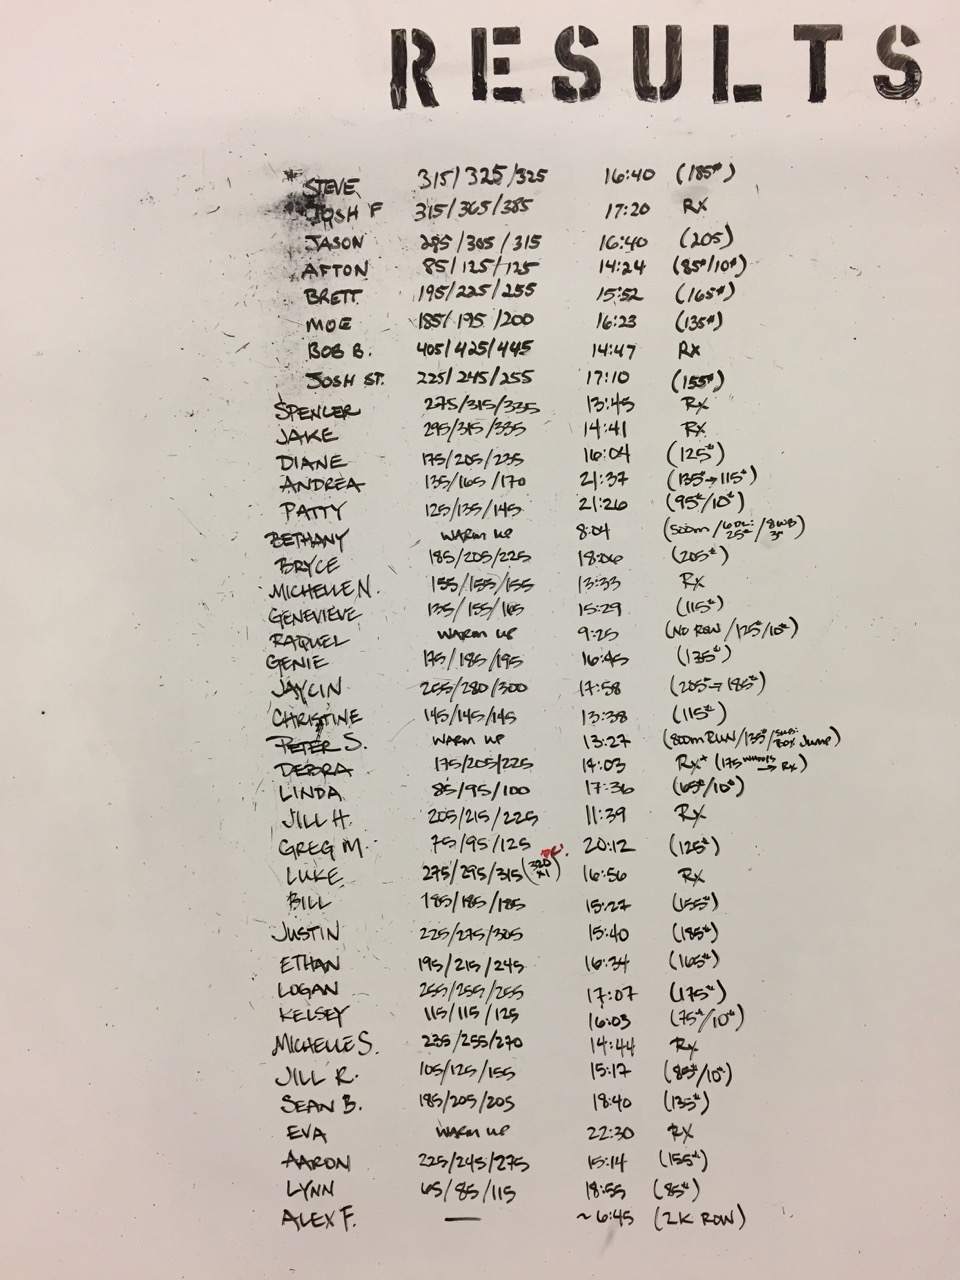 RESULTS
STEVE 315/325/325 16:40 (185#)
JOSH F 315/365/385 17:20 RX
JASON 285/305/315 16:40 (205)
AFTON 85/125/125 14:24 (85#/10#)
BRETT 195/225/255 15:52 (165#)
MOE 185/195/200 16:23 (135#)
BOB B. 405/425/445 14:47 RX
JOSH ST. 225/245/255 17:10 (155#)
SPENCER 275/315/335 13:45 RX
JAKE 295/315/335 14:41 RX
DIANE 175/205/235 16:04 (125#)
ANDREA 135/165/170 21:37 (135#→115#)
PATTY 125/135/145 21:26 (95#/10#)
BETHANY WARM UP 8:04 (500m/6DL: 25#/8WB 3#)
BRYCE 185/205/225 18:06 (205#)
MICHELLE N. 155/155/155 13:33 RX
GENEVIEVE 135/155/165 15:29 (115#)
RAQUEL WARM UP 9:25 (NO ROW/125#/10#)
GENIE 175/185/195 16:45 (135#)
JAYLIN 255/280/300 17:58 (205#→185#)
CHRISTINE 145/145/145 13:38 (115#)
PETER S. WARM UP 13:27 (800m RUN/135#/SUB: BOX JUMP)
DEBRA 175/205/225 14:03 RX+ (175 → RX)
LINDA 85/95/100 17:36 (65#/10#)
JILL H. 205/215/225 11:39 RX
GREG M. 75/95/125 20:12 (125#)
LUKE 275/295/315 (320 X1) PR! 16:56 RX
BILL 185/185/185 15:27 (155#)
JUSTIN 225/275/305 15:40 (185#)
ETHAN 195/215/245 16:34 (165#)
LOGAN 255/255/255 17:07 (175#)
KELSEY 115/115/125 16:03 (75#/10#)
MICHELLE S. 235/255/270 14:44 RX
JILL R. 105/125/155 15:17 (85#/10#)
SEAN B. 185/205/205 18:40 (135#)
EVA WARM UP 22:30 RX
AARON 225/245/275 15:14 (155#)
LYNN 65/85/115 18:55 (85#)
ALEX F. — ~6:45 (2K ROW)